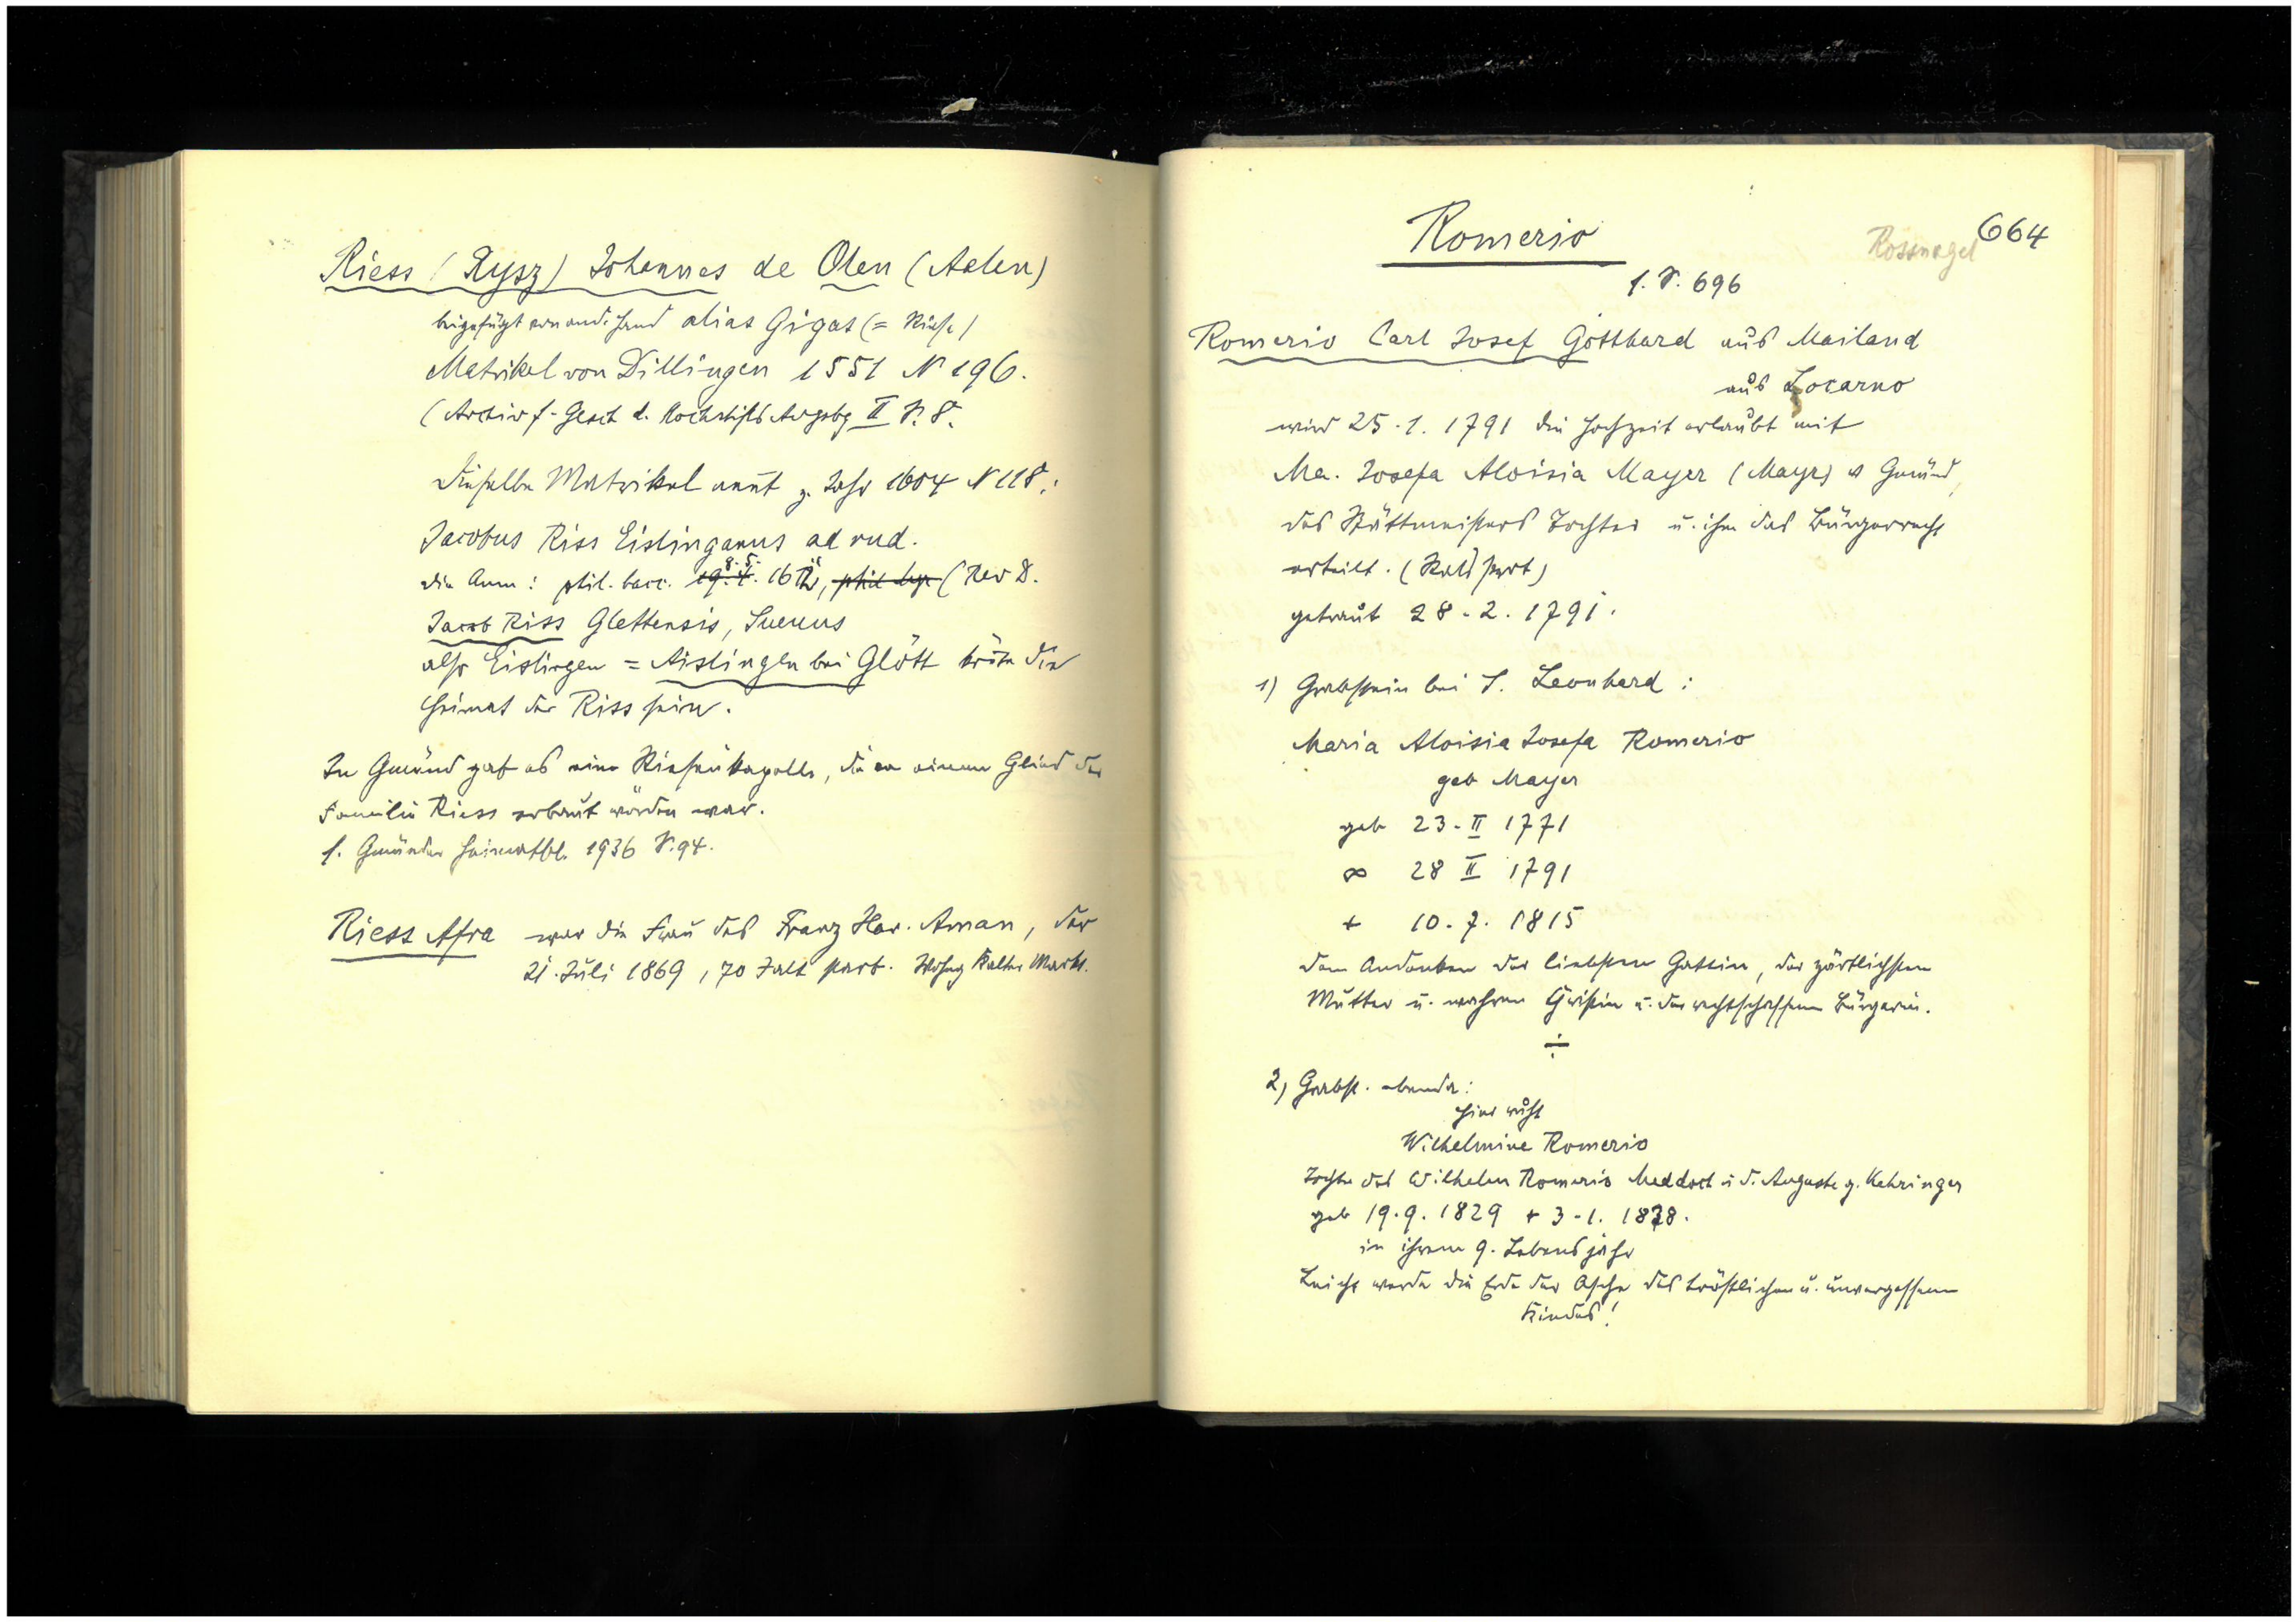 Riess (Rysz) Johannes de Olen (Aalen)
beigefügt von and. Hand alias Gigas (= Riese)
Matrikel von Dillingen 1551 N 196.
(Archiv f. Gesch d. Hochstifts Augsbg II S. 8.
Dieselbe Matrikel nennt z. Jahr 1604 N 118:
Jacobus Riss Eislinganus ad rud.
die Anm: phil. bacc. 8.5. 16 (Rev D.
Jacob Riss Glettensis, Suevus
also Eislingen = Aislingen bei Glött könnte die
Heimat der Riss sein.
In Gmünd gab es eine Riesenkapelle, die von einem Glied der
Familie Riess erbaut worden war.
s. Gmünder Heimatbl. 1936 S. 94.
Riess Afra war die Frau des Franz Xav. Aman, der
21. Juli 1869, 70 J alt starb. Wohng Kalter Markt.
664
Rossnagel
Romerio
s. S. 696
Romerio Carl Josef Gotthard aus Mailand
aus Locarno
wird 25.1.1791 die Hochzeit erlaubt mit
Ma. Josefa Aloisia Mayer (Mayr) v Gmünd,
des Stättmeisters Tochter u. ihm das Bürgerrecht
erteilt. (
getraut 28.2.1791.
1) Grabstein bei S. Leonhard:
Maria Aloisia Josefa Romerio
geb Mayer
geb 23. II 1771
∞ 28 II 1791
+ 10.7.1815
dem Andenken der liebsten Gattin, der zärtlichsten
Mutter u. wahren Christin u. der rechtschaffenen Bürgerin.
÷
2) Grabst. ebenda:
Hier ruht
Wilhelmine Romerio
Tochter des Wilhelm Romerio Med doct u d. Auguste g. Kehringer
geb 19.9.1829 + 3.1.1838.
in ihrem 9. Lebensjahr
Leicht werde die Erde der Asche des tröstlichen u. unvergessenen
Kindes!